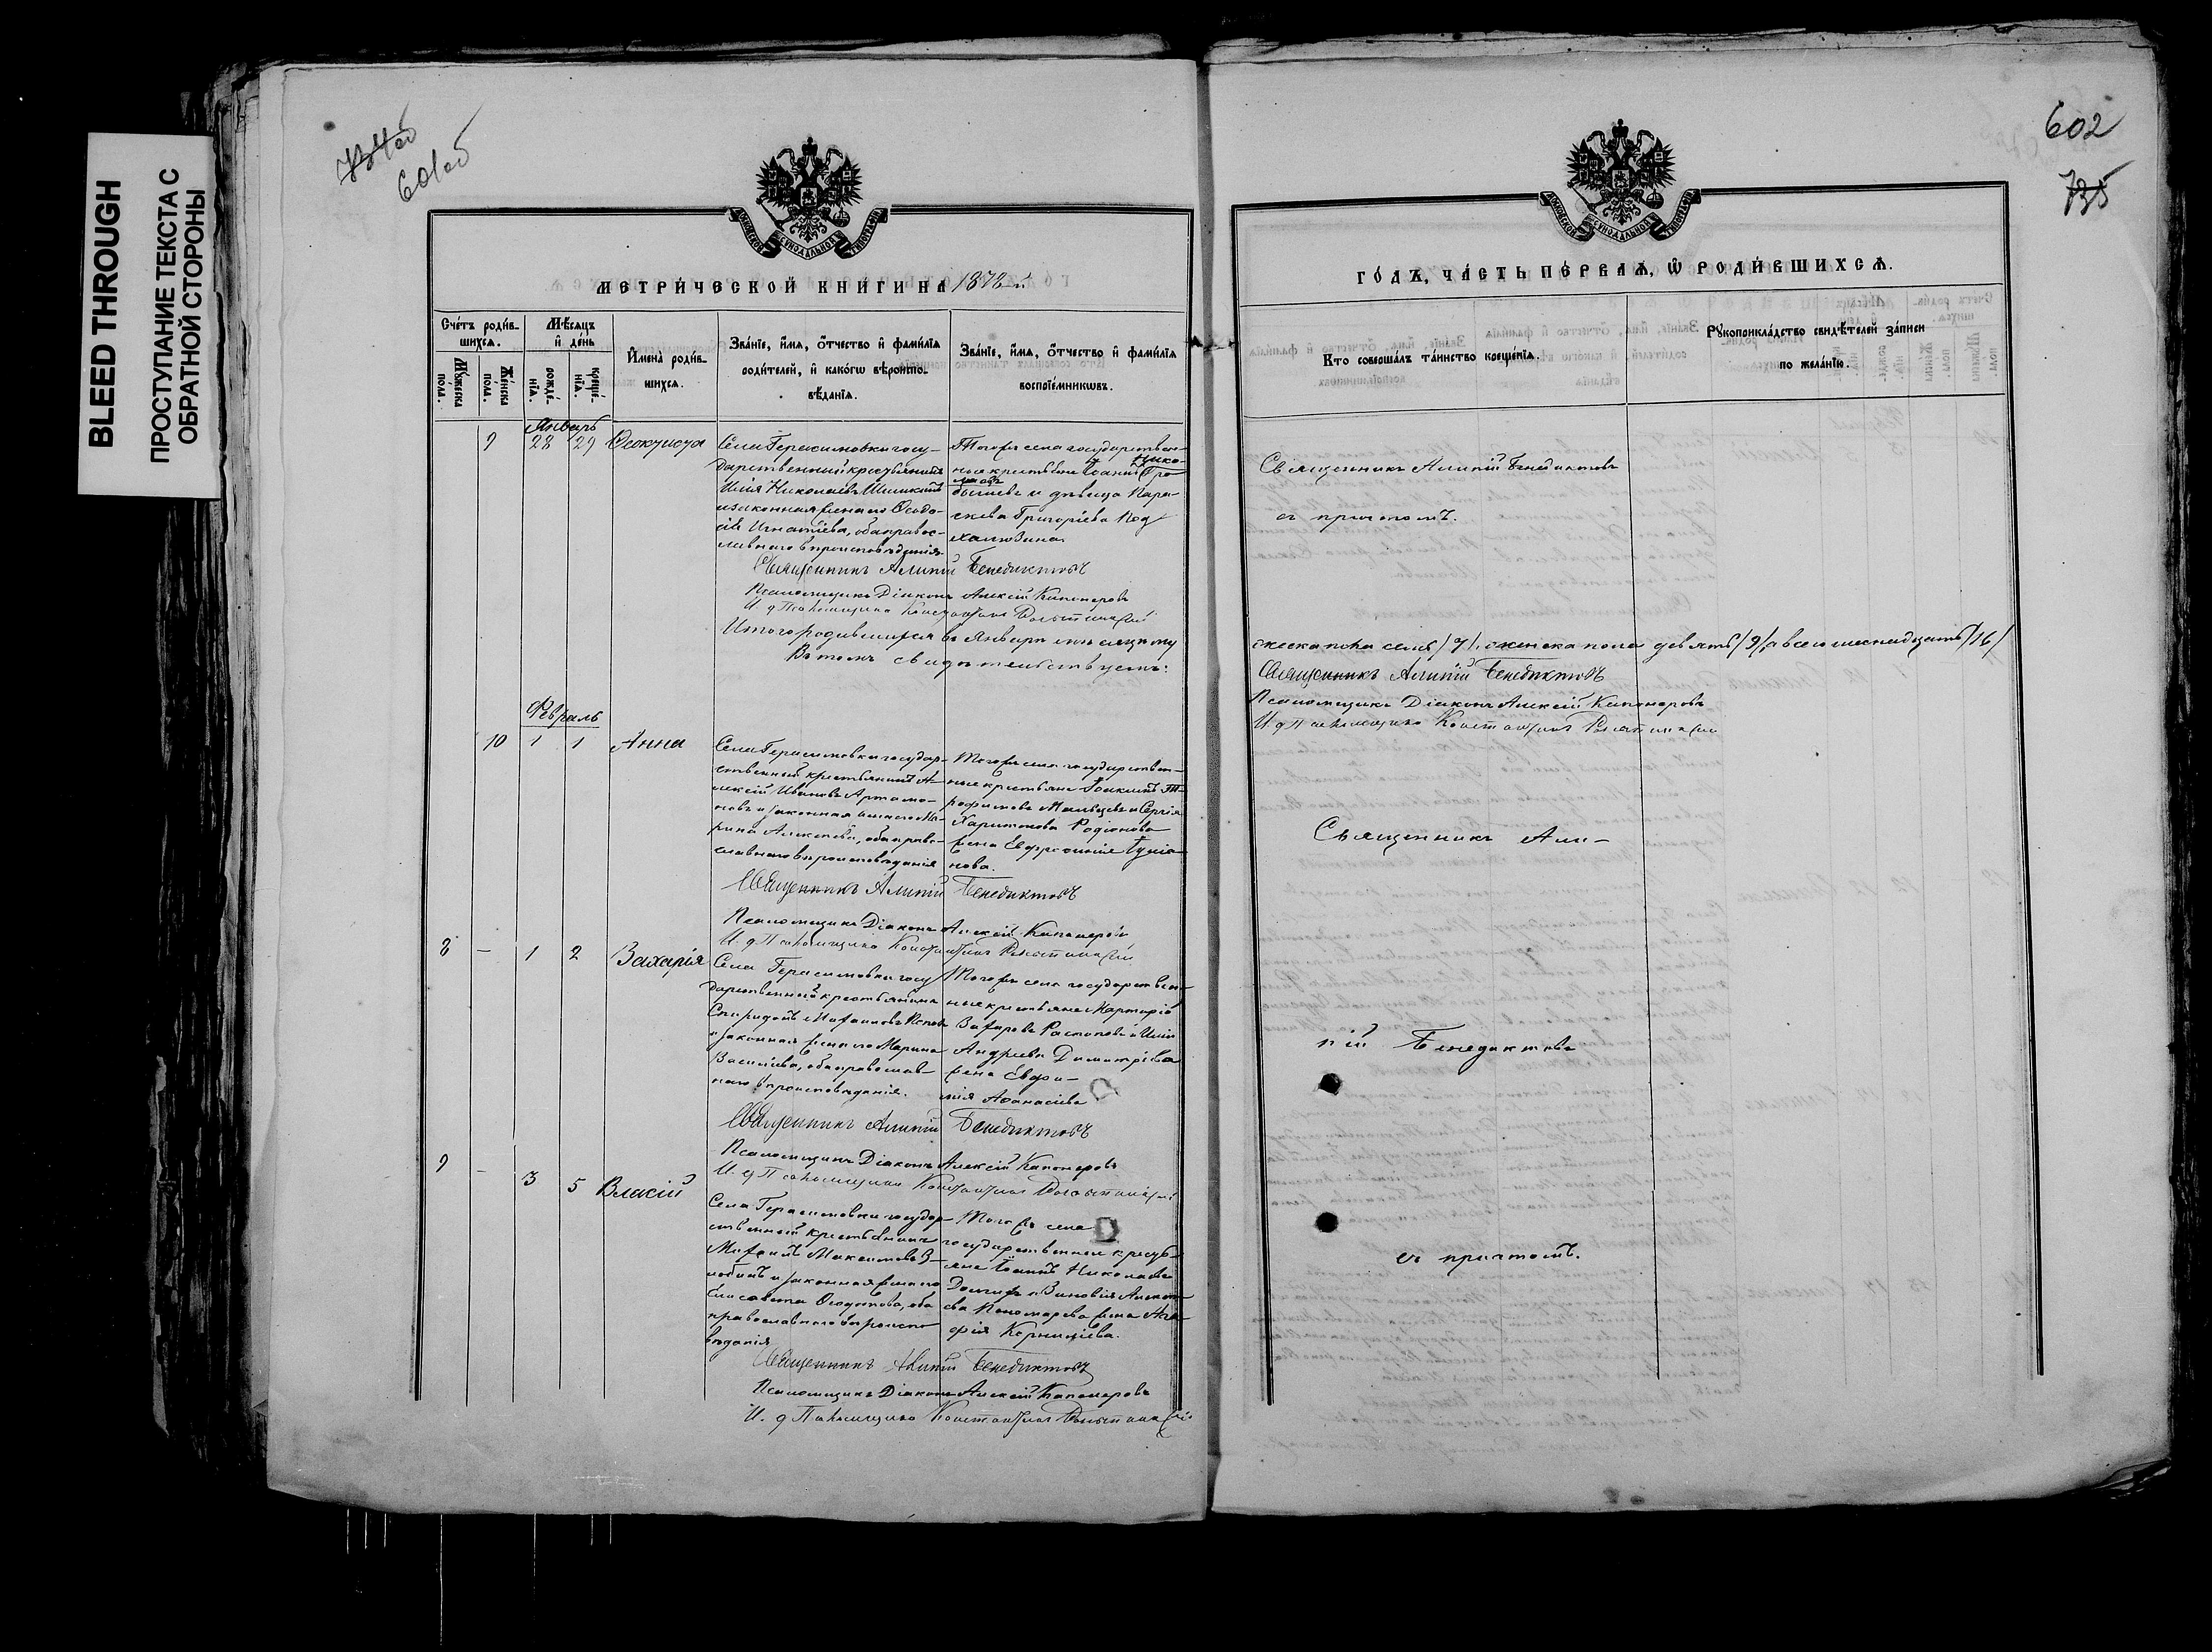 BLEED THROUGH
ПРОСТУПАНИЕ ТЕКСТА С
ОБРАТНОЙ СТОРОНЫ
601об
602
735
МЕТРИ́ЧЕСКОЙ КНИГИ НА 1872й
Сче́тъ роди́в-
шихсѧ.
Мѣ́сѧцъ
и҆ де́нь
Мꙋ́жеска
по́ла.
Же́нска
по́ла.
рожде́-
нїѧ.
креще́-
нїѧ.
И҆мена̀ роди́в-
шихсѧ.
Зва́нїе, и҆́мѧ, ѻ҆́тчество и҆ фами́лїѧ
роди́телей, и҆ како́гѡ вѣроиспо-
вѣ́данїѧ.
Зва́нїе, и҆́мѧ, ѻ҆́тчество и҆ фами́лїѧ
воспрїе́мникѡвъ.
Январь
9 28 29 Ѳеоктиста
Села Герасимовки госу-
дарственный крестьянинъ
Илія Николаевъ Шишкинъ
и законная жена его Ѳеодо-
сія Игнатіева, оба правос-
лавнаго вѣроисповѣданія
Того же села государствен-
ные крестьяне Іоаннъ Нико-
лаевъ
и дѣвица Пара-
скева Григоріева
Священникъ Алипій Бенедиктовъ
Псаломщикъ Діаконъ Алексій Капонеровъ
И. д. Псаломщика Константинъ
Итого родившихся въ Январѣ мѣсяцѣ му
Въ томъ свидѣтельствуемъ:
Февраль
10 1 1 Анна
Села Герасимовки государ-
ственный крестьянинъ А-
лексій Ивановъ Артамо-
новъ и законная жена его Ма-
рина Алексѣева, оба право-
славнаго вѣроисповѣданія
Того же села государствен-
ные крестьяне Іоакимъ Т-
рофимовъ Мальцевъ и Сергія
Харитонова Родіонова
жена Евфросинія
нова.
Священникъ Алипій Бенедиктовъ
Псаломщикъ Діаконъ Алексій Капонеровъ
И. д. Псаломщика Константинъ
8 — 1 2 Захарія
Села Герасимовки госу
дарственный крестьянинъ
Спиридонъ
и законная жена его Марина
Васильева, оба православ
наго вѣроисповѣданія.
Того же села государствен-
ные крестьяне Мартирій
Захаровъ и Иліи
Андреева Димитріева
жена Евфи-
мія Аѳанасіева
Священникъ Алипій Бенедиктовъ
Псаломщикъ Діаконъ Алексій Капонеровъ
И. д. Псаломщика Константинъ
9 — 3 5 Власій
Села Герасимовки государ
ственный крестьянинъ
Максимовъ З-
лобинъ и законная жена его
Елисавета оба
православнаго вѣроиспо
вѣданія
Того же села
государственные кресть-
яне Іоаннъ Николаевъ
и Зиновія Алексѣ-
ева Пономарева жена Ага-
фія Корниліева.
Священникъ Алипій Бенедиктовъ
Псаломщикъ Діаконъ Алексій Капонеровъ
И. д. Псаломщика Константинъ
ГО́ДЪ, ЧА́СТЬ ПЕ́РВАѦ, Ѽ РОДИ́ВШИХСѦ.
Кто̀ соверша́лъ та́инство креще́нїѧ.
Рꙋкоприкла́дство свидѣ́телей за́писи
по жела́нїю.
Священникъ Алипій Бенедиктовъ
съ причтомъ.
жеска пола семь /7/, женска пола девять /9/, а всего шеснадцать /16/
Священникъ Алипій Бенедиктовъ
Псаломщикъ Діаконъ Алексій Капонеровъ
И. д. Псаломщика Константинъ
Священникъ Али-
пій Бенедиктовъ
съ причтомъ.